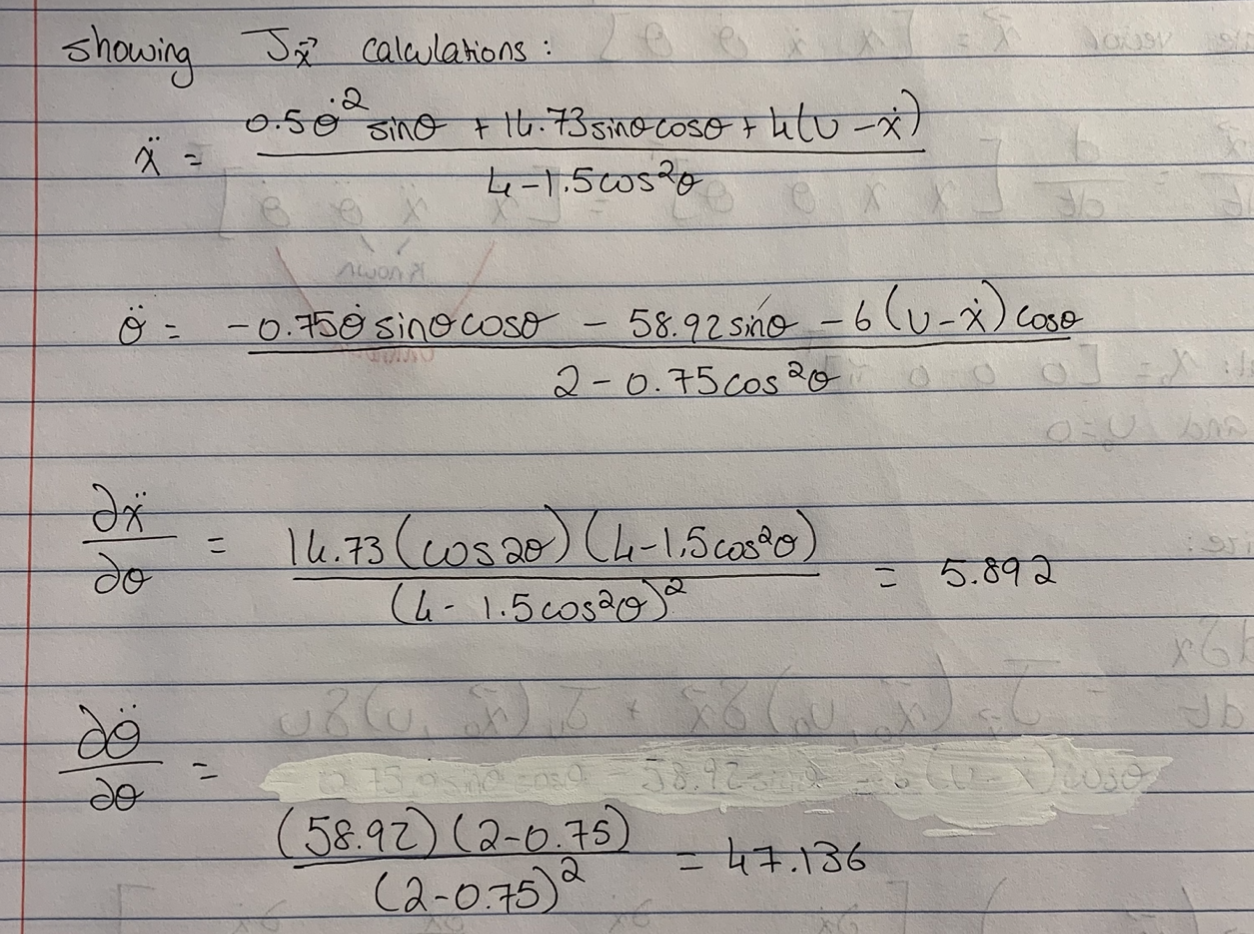 showing J_x⃗ calculations:
ẍ = (0.5θ̇² sinθ + 14.73 sinθcosθ + 4(U − ẋ)) / (4 − 1.5cos²θ)
θ̈ = (−0.75θ̇ sinθcosθ − 58.92 sinθ − 6(U − ẋ) cosθ) / (2 − 0.75cos²θ)
∂ẍ/∂θ = (14.73(cos2θ)(4−1.5cos²θ)) / (4 − 1.5cos²θ)² = 5.892
∂θ̈/∂θ =
((58.92)(2−0.75)) / (2−0.75)² = 47.136